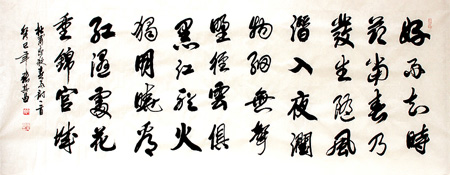 好雨知時
節當春乃
發生随風
潛入夜潤
物細無聲
野徑雲俱
黑江船火
獨明曉看
紅濕處花
重錦官城
杜甫春夜喜雨詩一首
癸巳年